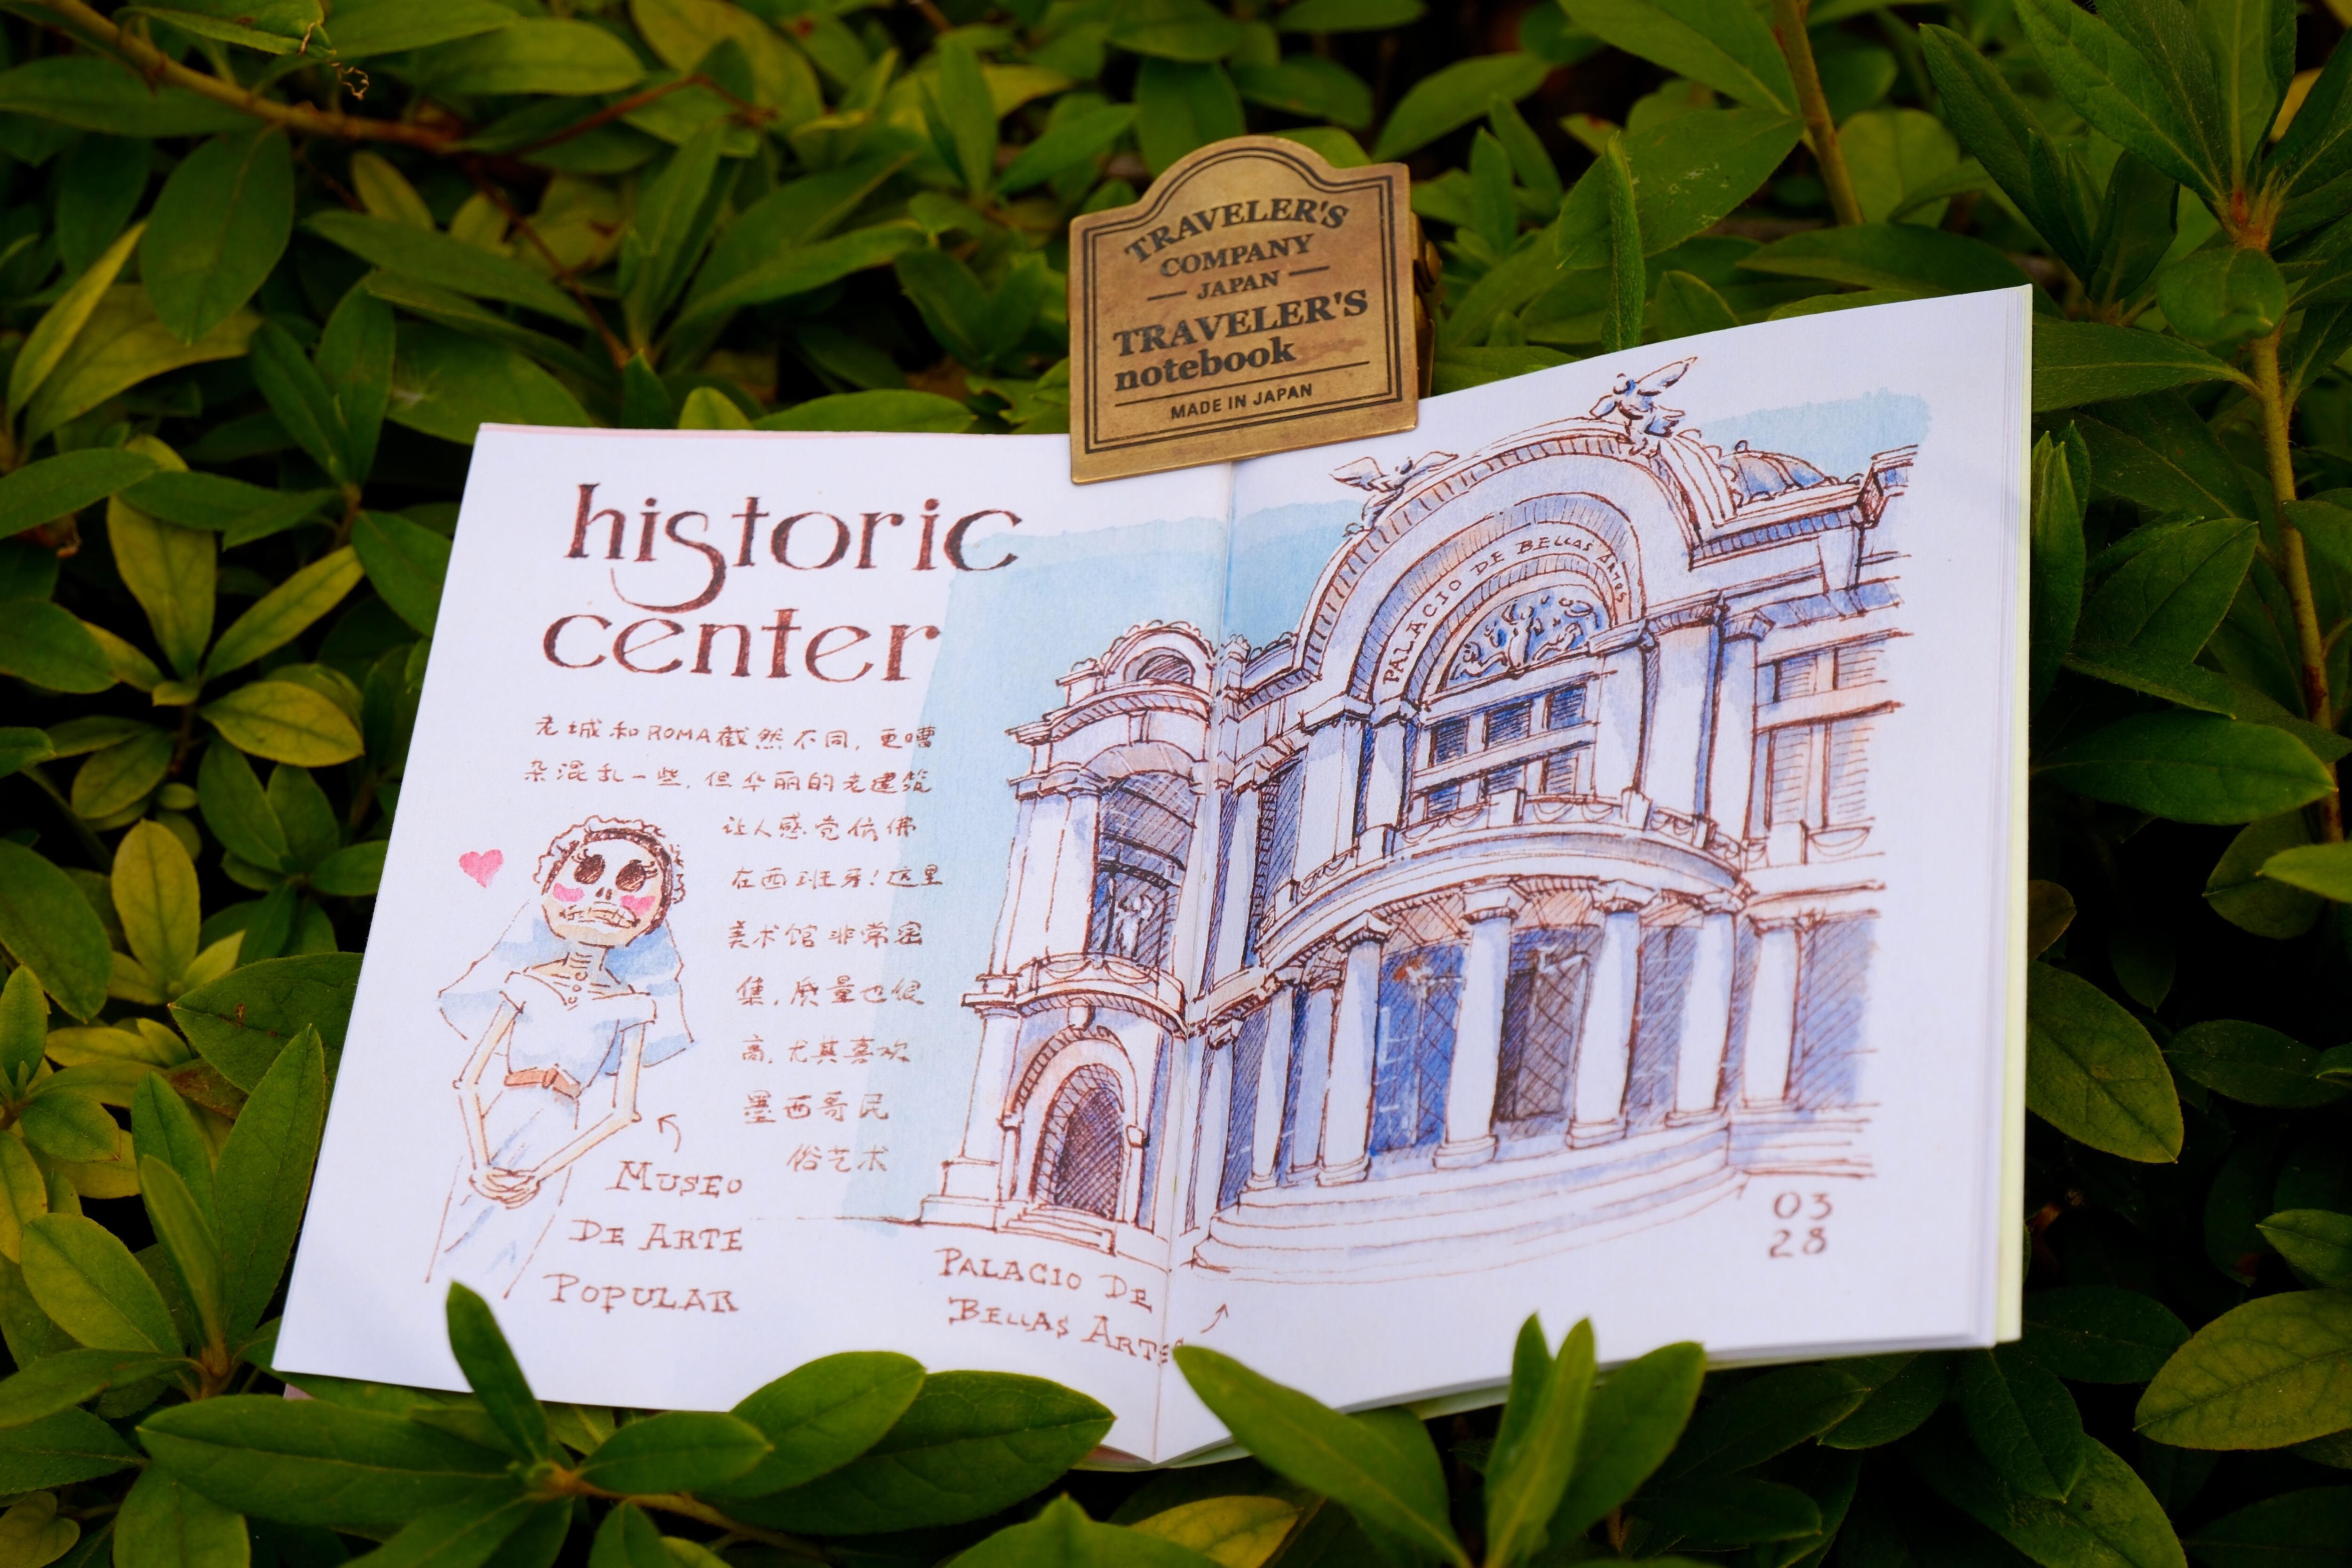 TRAVELER'S
COMPANY
JAPAN
TRAVELER'S
notebook
MADE IN JAPAN
historic
center
老城和ROMA截然不同,更嘈
杂混乱一些,但华丽的老建筑
让人感觉仿佛
在西班牙!这里
美术馆非常密
集,质量也很
高,尤其喜欢
墨西哥民
俗艺术
MUSEO
DE ARTE
POPULAR
PALACIO DE BELLAS ARTES
PALACIO DE
BELLAS ARTES
03
28